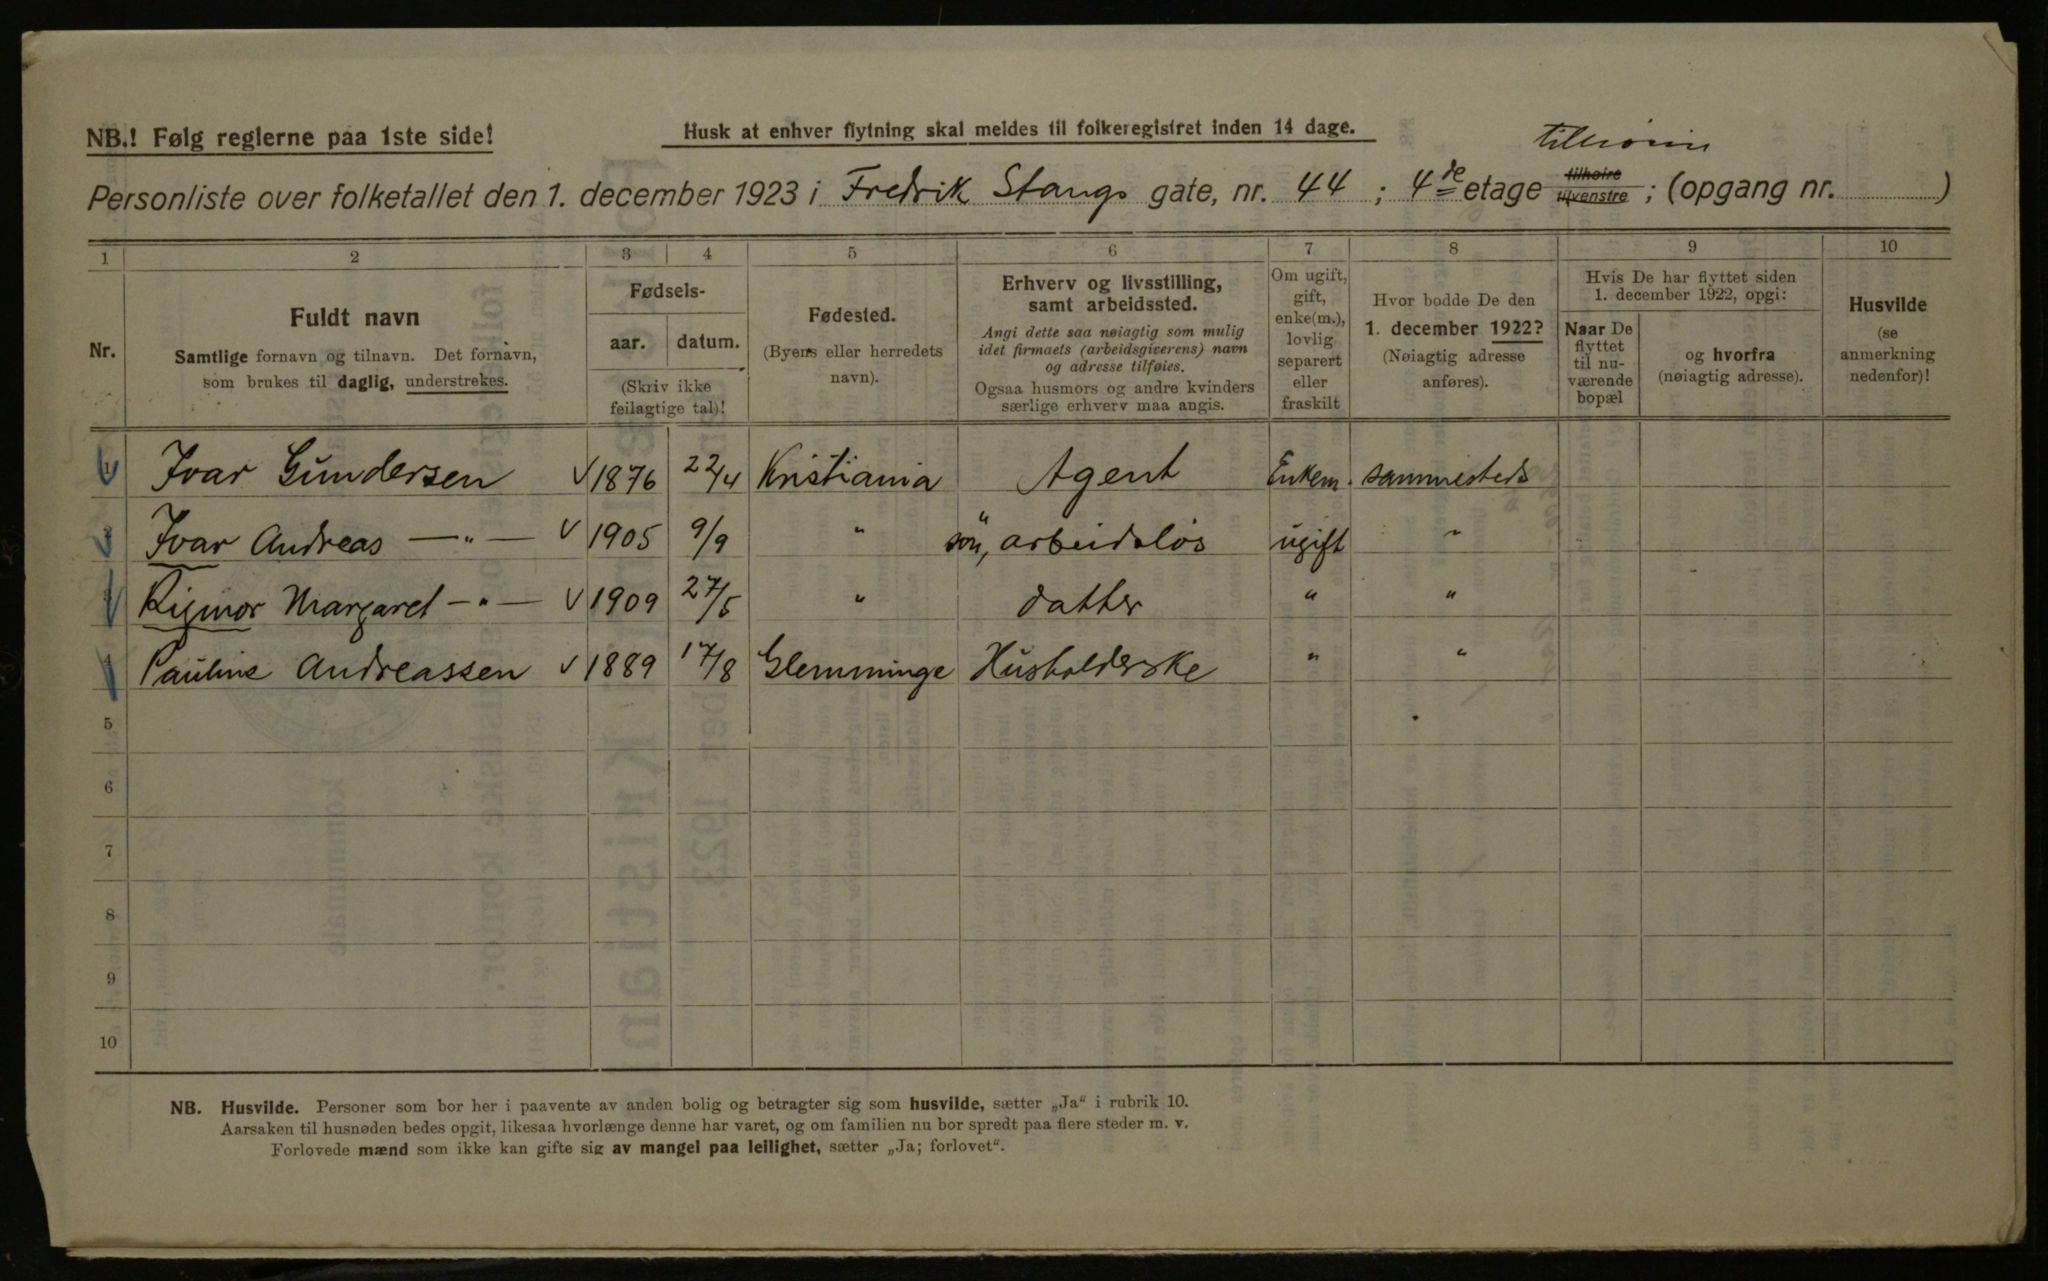 NB.! Følg reglerne paa 1ste side!
Husk at enhver flytning skal meldes til folkeregistret inden 14 dage.
Personliste over folketallet den 1. december 1923 i Fredrik Stangs gate, nr. 44 ; 4de etage tilhoire tilvenstre ; (opgang nr. )
1 2 3 4 5 6 7 8 9 10
Nr.
Fuldt navn
Samtlige fornavn og tilnavn. Det fornavn,
som brukes til daglig, understrekes.
Fødsels-
aar. datum.
(Skriv ikke
feilagtige tal)!
Fødested.
(Byens eller herredets
navn).
Erhverv og livsstilling,
samt arbeidssted.
Angi dette saa nøiagtig som mulig
idet firmaets (arbeidsgiverens) navn
og adresse tilføies.
Ogsaa husmors og andre kvinders
særlige erhverv maa angis.
Om ugift,
gift,
enke(m.),
lovlig
separert
eller
fraskilt
Hvor bodde De den
1. december 1922?
(Nøiagtig adresse
anføres).
Hvis De har flyttet siden
1. december 1922, opgi:
Naar De
flyttet
til nu-
værende
bopæl
og hvorfra
(nøiagtig adresse).
Husvilde
(se
anmerkning
nedenfor)!
1 Ivar Gundersen V 1876 22/4 Kristiania Agent Enkem. sammesteds
2 Ivar Andreas —"— V 1905 9/9 " søn, arbeidsløs ugift "
3 Rigmor Margaret —"— V 1909 27/5 " datter " "
4 Pauline Andreassen V 1889 17/8 Glemminge Husholderske " "
5
6
7
8
9
10
NB. Husvilde. Personer som bor her i paavente av anden bolig og betragter sig som husvilde, sætter „Ja“ i rubrik 10.
Aarsaken til husnøden bedes opgit, likesaa hvorlænge denne har varet, og om familien nu bor spredt paa flere steder m. v.
Forlovede mænd som ikke kan gifte sig av mangel paa leilighet, sætter „Ja; forlovet“.